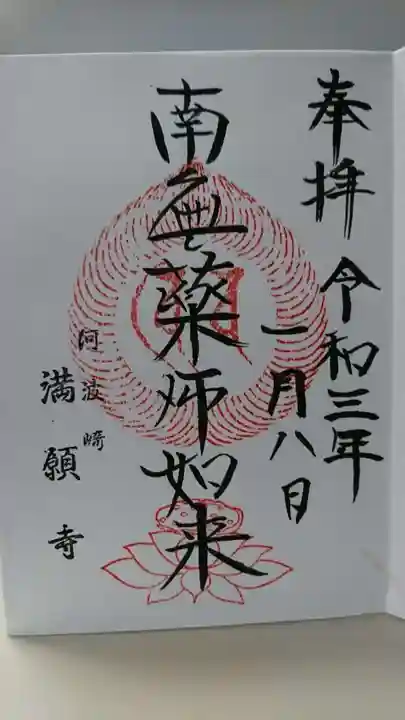 奉拝
令和三年
一月八日
南無薬師如来
阿波崎
満願寺